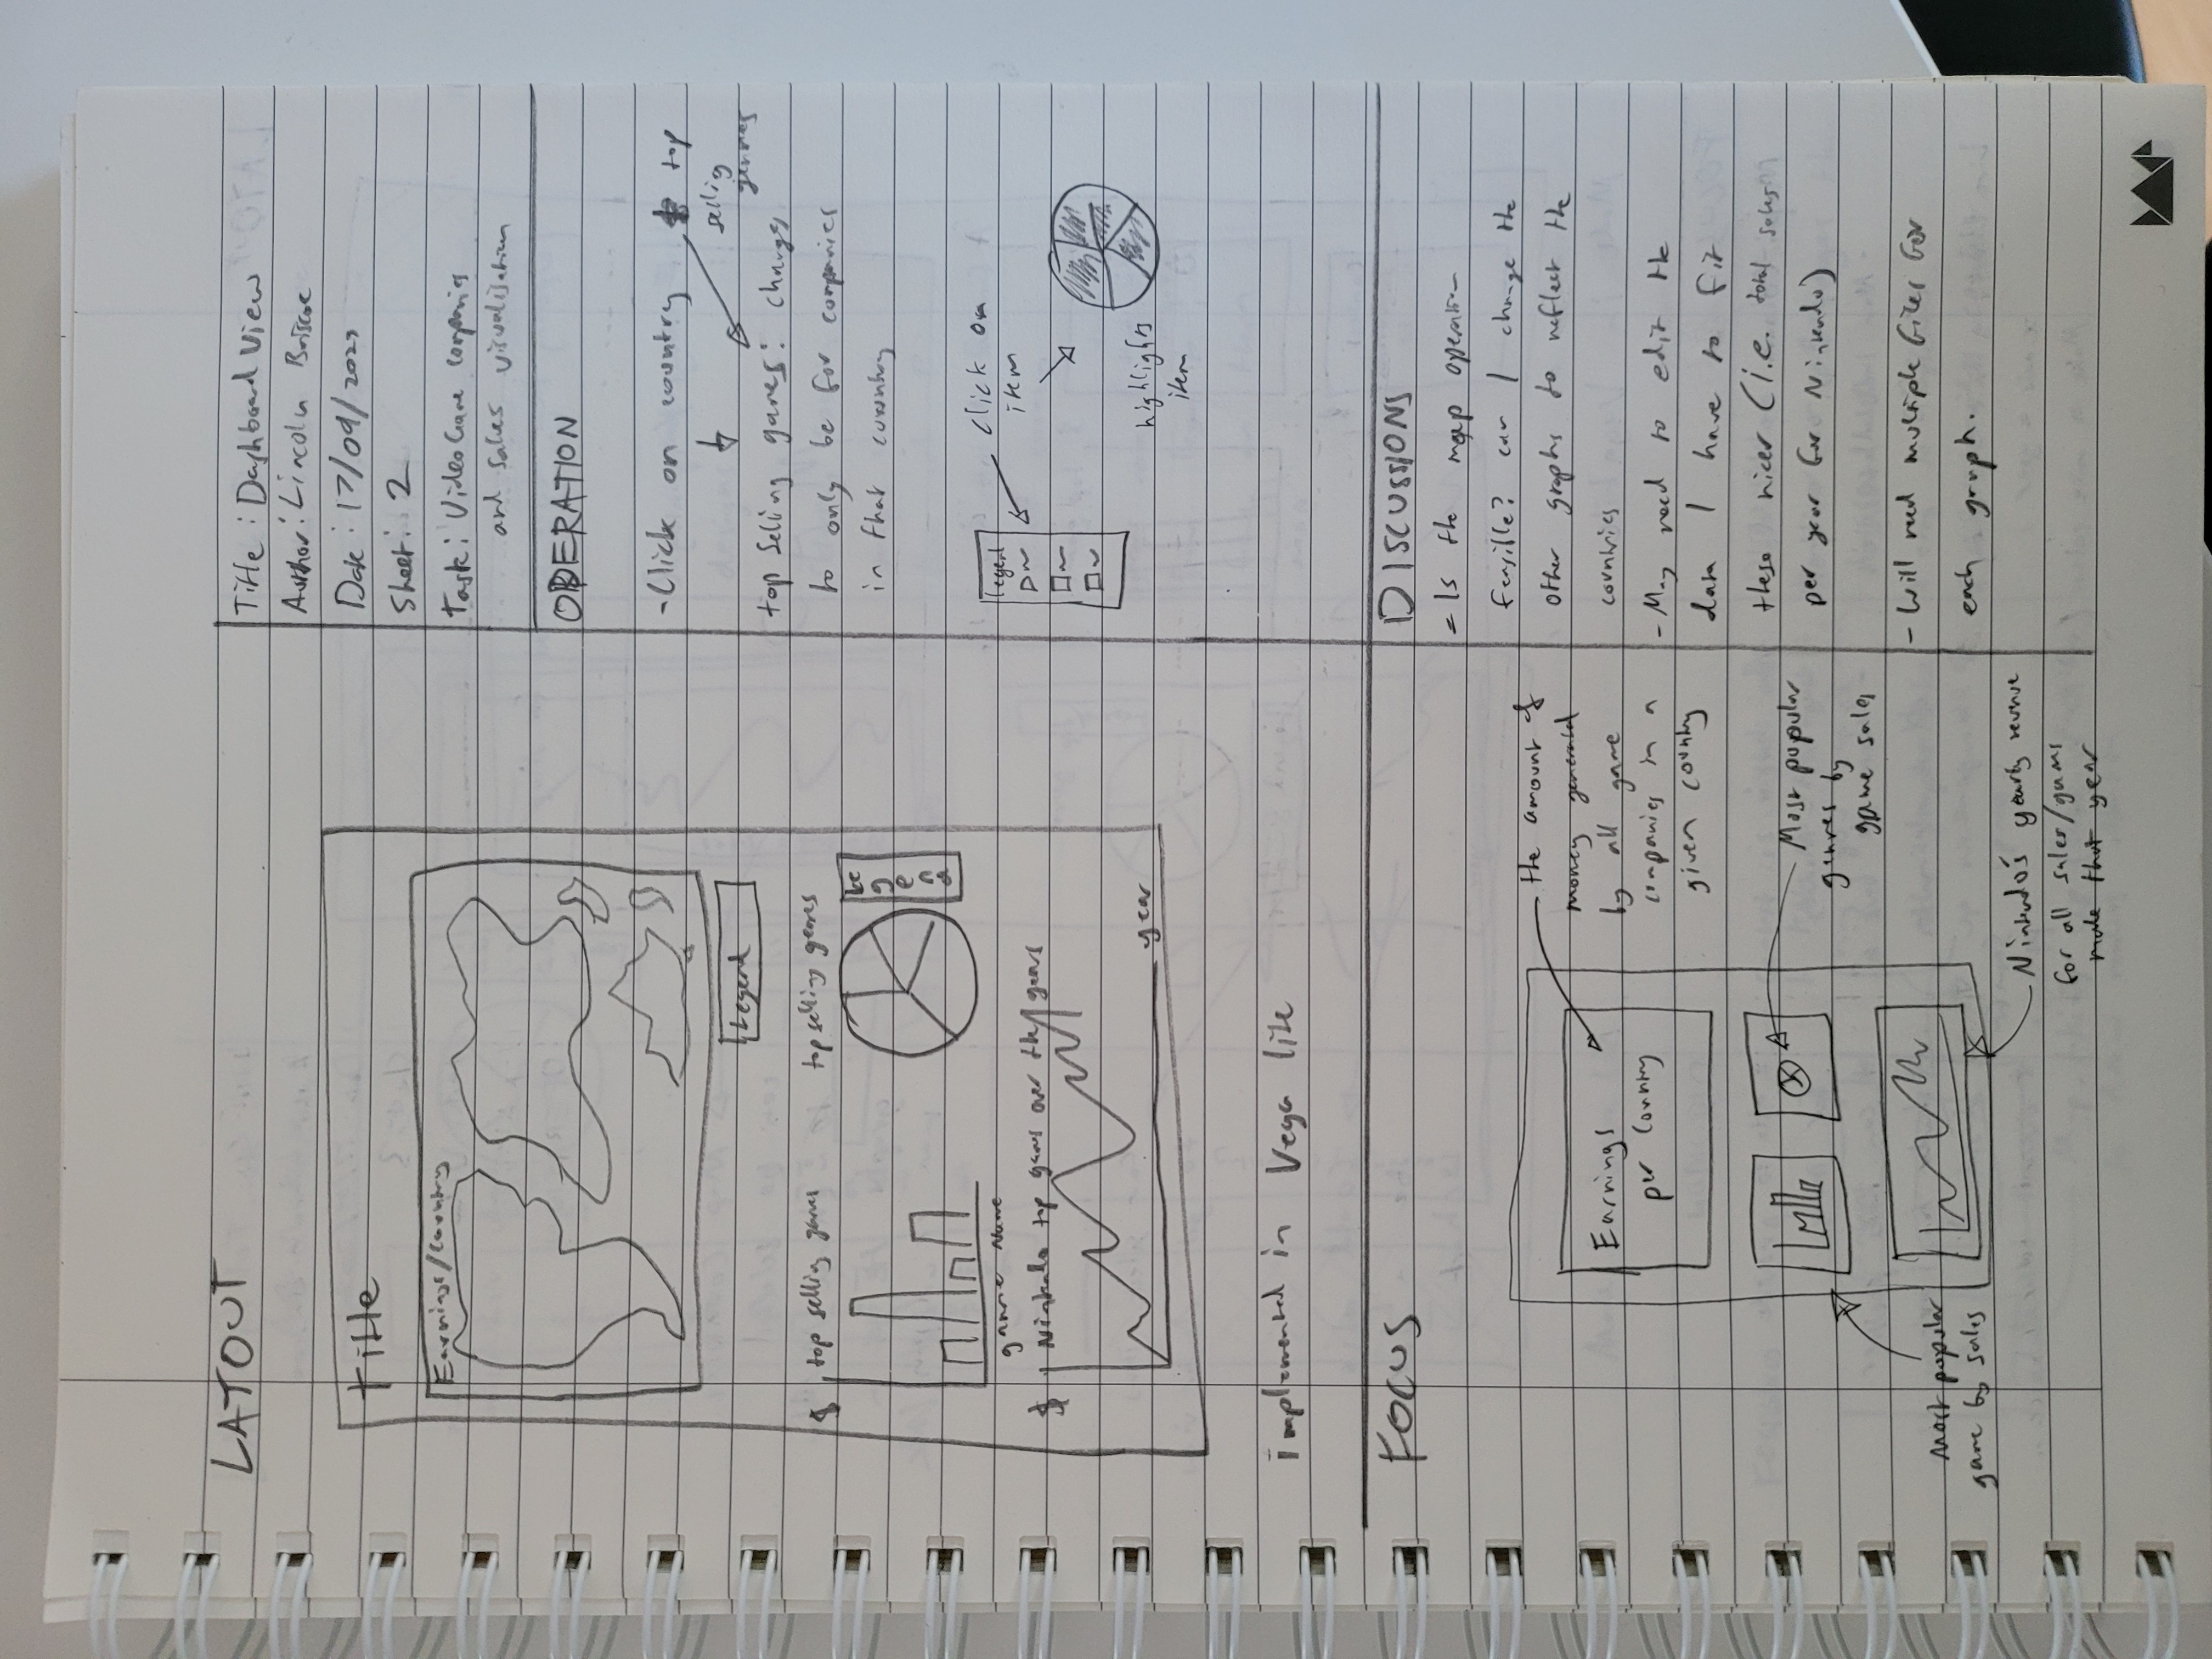 LAYOUT
Title
Earnings/Country
Legend
$ top selling games
top selling genres
Legend
game Name
$ Nintendo top games over the years
year
implemented in Vega lite
Title: Dashboard View
Author: Lincoln Briscoe
Date: 17/09/2023
Sheet: 2
Task: Video Game companies
and sales visualisation
OPERATION
- Click on country
top
selling
genres
top selling games: changes
to only be for companies
in that country
Legend
Click on
item
highlights
item
FOCUS
Earnings
per Country
the amount of
money generated
by all game
companies in a
given country
Most popular
genres by
game sales
Most popular
game by sales
Nintendo's yearly revenue
for all sales/games
made that year
DISCUSSIONS
- Is the map operation
feasible? can I change the
other graphs to reflect the
countries
- May need to edit the
data I have to fit
these nicer (i.e. total sales
per year for Nintendo)
- Will need multiple files for
each graph.